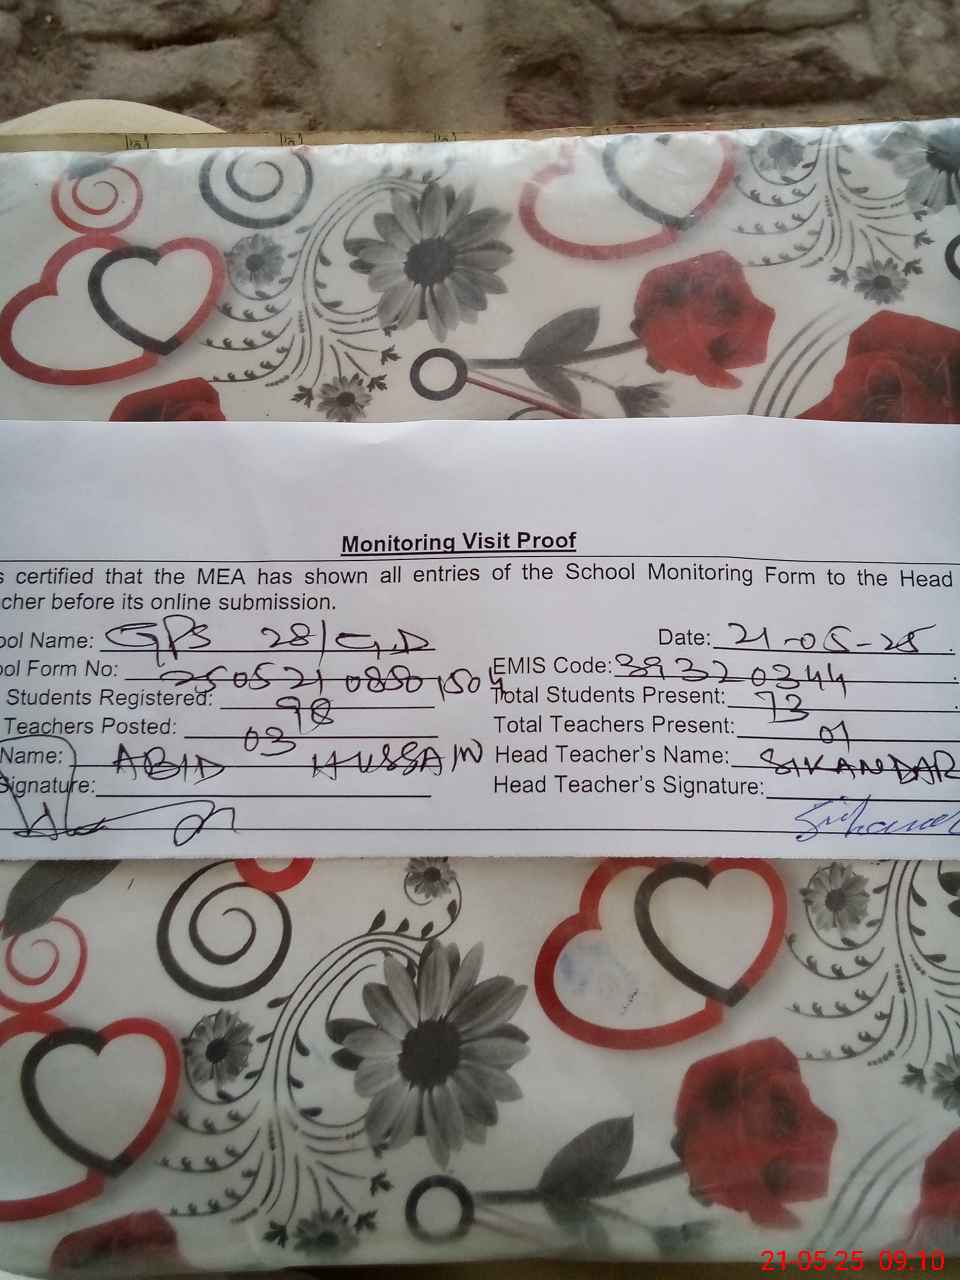 Monitoring Visit Proof
s certified that the MEA has shown all entries of the School Monitoring Form to the Head
cher before its online submission.
ool Name: GPS 28/G.D Date: 21-05-25.
ool Form No: 250521 0850 1504 EMIS Code: 39320344.
Students Registered: 98 Total Students Present: 73.
Teachers Posted: 03 Total Teachers Present: 01
Name: ABID HUSSAIN Head Teacher's Name: SIKANDAR
Signature: Head Teacher's Signature:
21-05-25 09:10